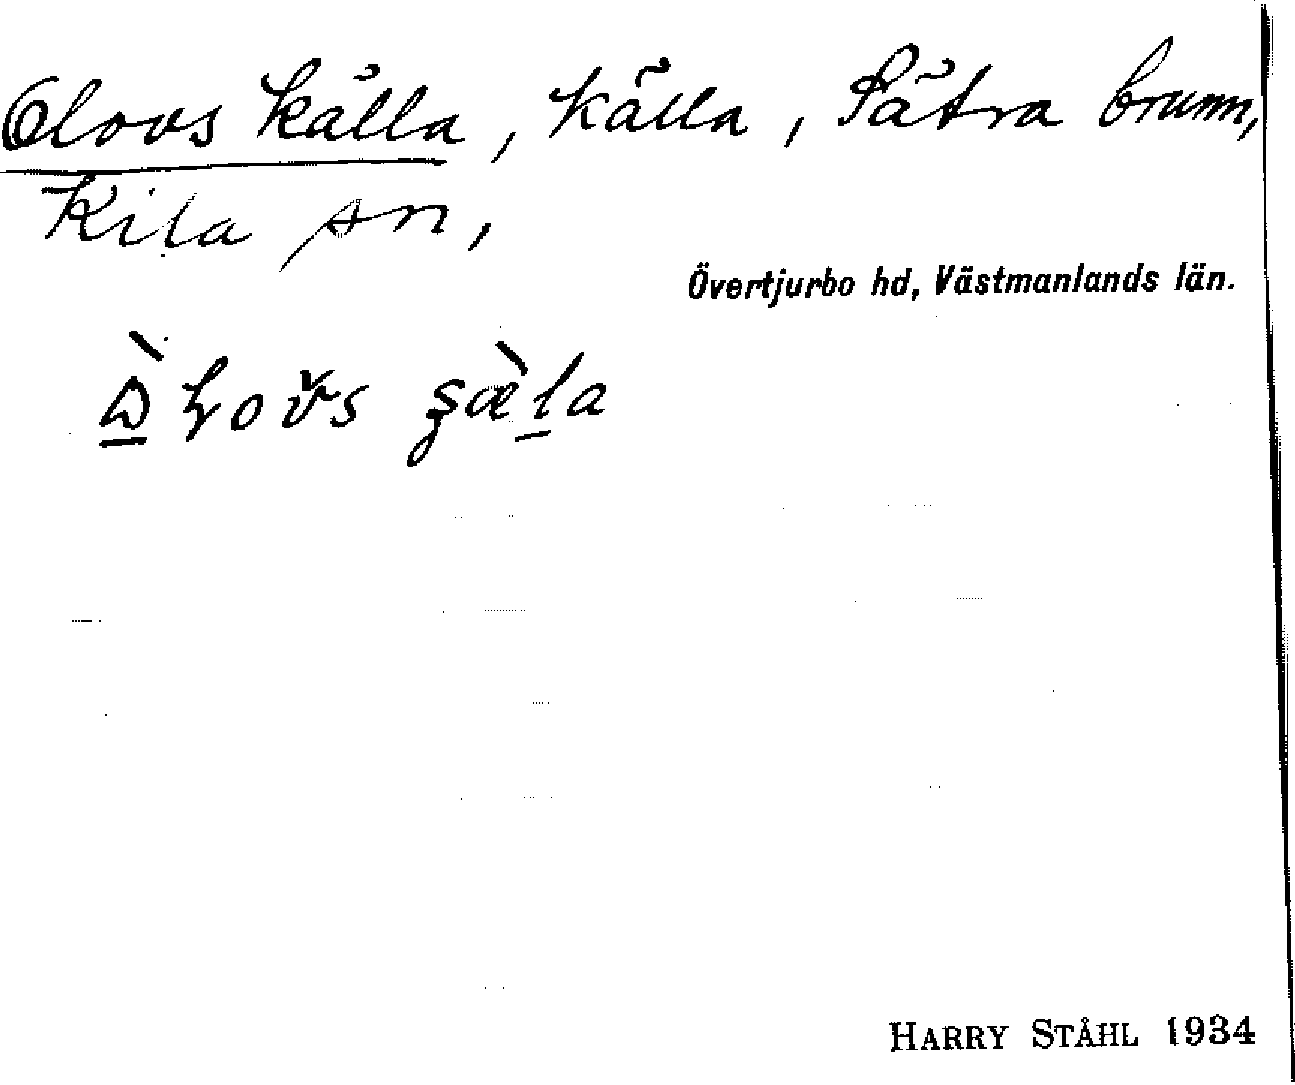 Olovs källa, källa, Sätra brunn,
Kila sn,
Övertjurbo hd, Västmanlands län.
HARRY STÅHL 1934